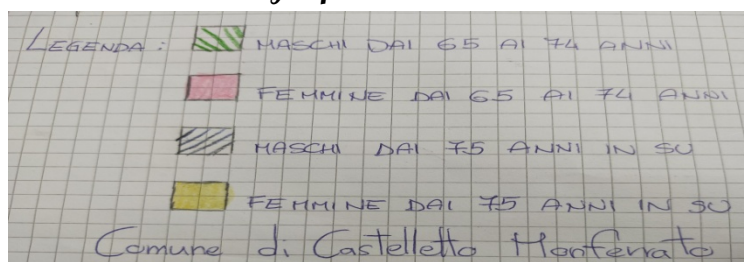 LEGENDA: MASCHI DAI 65 AI 74 ANNI
FEMMINE DAI 65 AI 74 ANNI
MASCHI DAI 75 ANNI IN SU
FEMMINE DAI 75 ANNI IN SU
Comune di Castelletto Monferrato